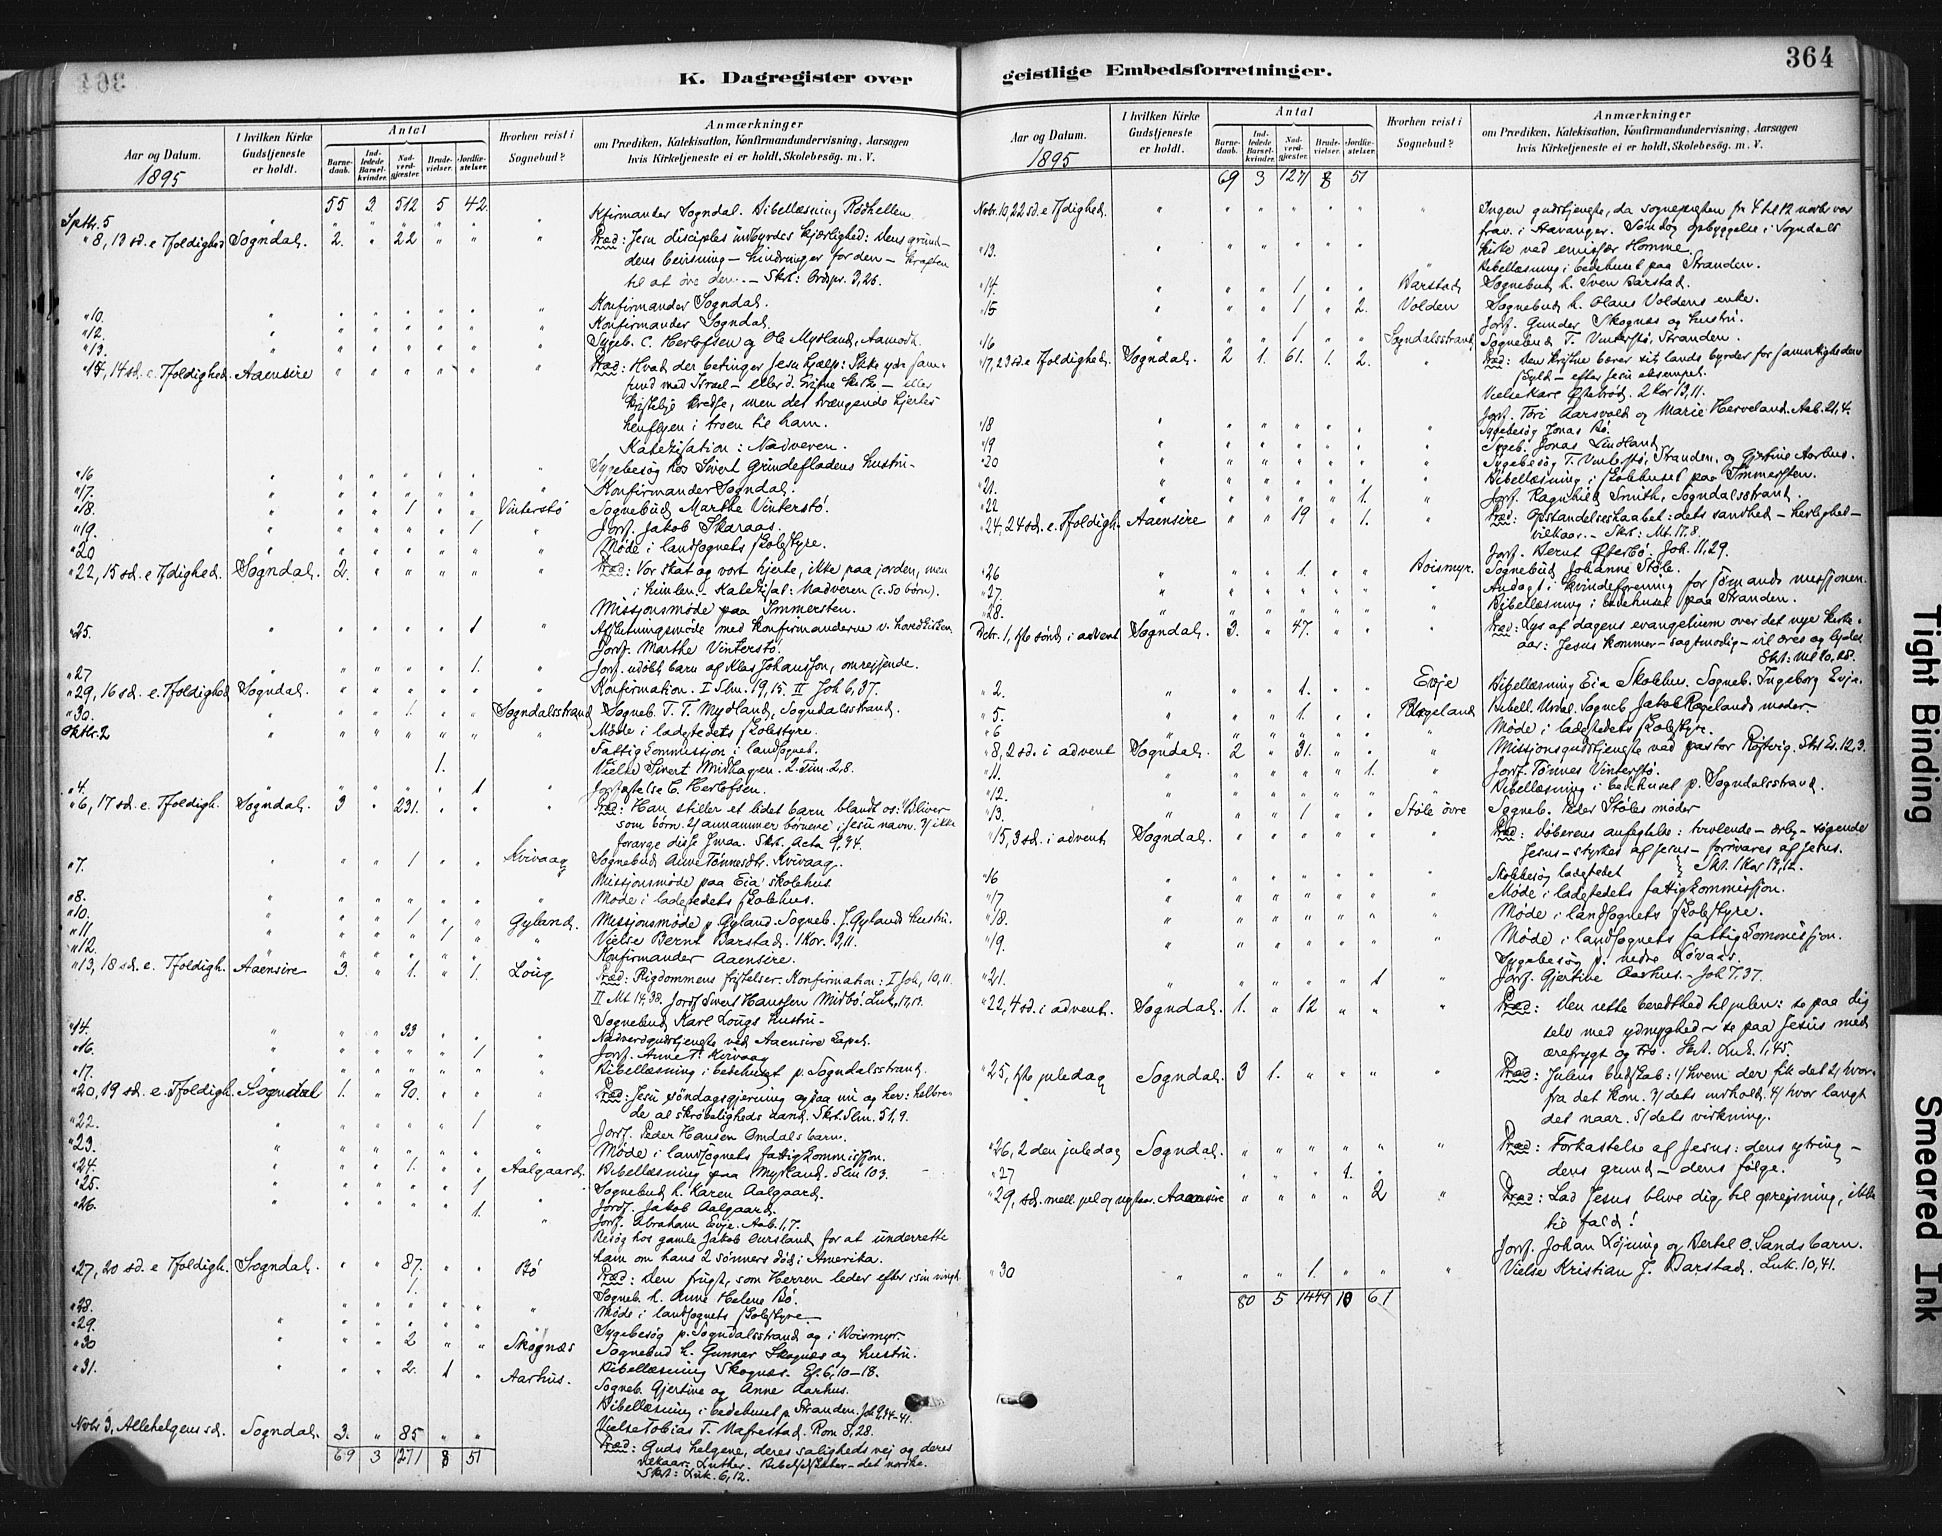 364
K. Dagregister over
Aar og Datum.
1895
I hvilken Kirke Gudstjeneste er holdt.
Antal
Barnedaab.
Indledede Barselkvinder.
Nadverdgjæster.
Brudevielser.
Jordfæstelser.
Hvorhen reist i Sognebud?
Anmærkninger
om Prædiken, Katekisation, Konfirmandundervisning, Aarsagen
hvis Kirketjeneste ei er holdt, Skolebesög. m. V.
55 3 512 5 42.
Sptbr. 5 " " " " " " " Kfirmander Sogndal. Bibellæsning Rödhellen
"8, 13 sd. e Tfoldighed Sogndal. 2. " 22 " " " Præd: Jesu disciples inbyrdes kjærlighed: dens grund-
dens bevisning – hindringer for den – kraften
til at öve den. – Skt: Ordspr. 3,26.
"10. " " " " " " " Konfirmander Sogndal.
"12. " " " " " " " Konfirmander Sogndal.
"13. " " " " " " " Sygeb. C. Herlofsen og Ole Mydland, Aamodt.
"15, 14 sd. e. Tfoldighed. Aaensire " " " " " " Præd: Hvad der betinger Jesu hjælp: Ikke ydre sam-
fund med Israel – eller d. kristne kirke – eller
kristelige kredse, men det trængende hjertes
henflyen i troen til ham.
Katekisation: Nadveren.
"16 " " " " " " " Sygebesög hos Sivert Grindefladens hustru –
"17. " " " " " " " Konfirmander Sogndal.
"18. " " " 1 " " Vinterstö Sognebud Marthe Vinterstö.
"19. " " " " " 1 " Jorf. Jakob Skaraas.
"20 " " " " " " " Möde i landsognets skolestyre.
"22, 15 sd. e Tfdighed. Sogndal. 2. " " " " " Præd: Vor skat og vort hjerte, ikke paa jorden, men
i himlen. – Katekisat: Nadveren (c. 50 börn).
Missjonsmöde paa Immersten.
"25. " " " " " 1 " Afslutningsmöde med konfirmanderne v. hovedkirken
Jorf. Marthe Vinterstö.
"27 " " " " " 1. " Jorf. udöbt barn af Klas Johansson, omreisende.
"29, 16 sd. e. Tfoldighed Sogndal. " " " " " " Konfirmation. I Slm. 19,15. II Joh 6,37.
"30. " " " 1. " " Sogndalsstrand Sogneb. T. T. Mydland, Sogndalsstrand.
Oktbr. 2 " " " " " " " Möde i ladestedets skolestyre.
Fattigkommission i landsogneb.
1. Vielse Sivert Midhagen. 2. Tim. 2,8.
"4. " " " " " 1 " Jorfæstelse C. Herlofsen.
"6, 17 sd. e. Tfoldigh. Sogndal. 3 " 231. " " " Præd: Han stiller et lidet barn blandt os: 1/ Bliver
som börn. 2/ annammer börnene i Jesu navn. 3/ ikke
forarge disse smaa. Skt. Acta 9,34.
"7. " " " 1 " " Kvivaag Sognebud Anne Tönnesdtr. Kvivaag.
Missjonsmöde paa Eia skolehus
"8. " " " " " " " Möde i ladestedets skolehus.
"10. " " " 1 " " Gyland. Missjonsmöde p. Gyland. Sogneb. J. Gylands hustru.
"11 " " " " 1 " " Vielse Bernt Barstad. 1 Kor. 3,11.
"12. " " " " " " Konfirmander Aaensire.
"13, 18 sd. e. Tfoldigh. Aaensire 3. " 1. " 1. Löug Præd: Rigdommens fristelser. Konfirmation: I Joh, 10,11.
II Mt 14,38. Jorf. Sivert Hanssen Midbö. Luk, 17,17.
Sognebud Karl Lougs hustru –
"14. " " " 33 " " " Nadverdgudstjeneste ved Aaensire kapel.
"16. " " " " " 1 " Jorf. Anne T. Kvivaag
"17. " " " " " " " Bibellæsning i bedehuset p. Sogndalsstrand.
"20, 19 sd. e. Tfoldigh. Sogndal 1. " 90. " " " Præd: Jesu söndagsgjerning ogsaa nu og her: helbre-
de al skröbeligheds aand. Skt. Slm. 51,9.
"22. " " " " " 1 " Jorf. Peder Hansen Omdals barn.
"23. " " " " " " " Möde i landsognets fattigkommissjon.
"24. " " " 1. " " Aalgaard. Bibellæsning paa Myrland. Slm 103.
"25. " " " " " 1 Sognebud h. Karen Aalgaard.
"26. " " " " " 1. " Jorf. Jakob Aalgaard.
" Jorf. Abraham Evje. Aab. 1,7.
Besög hos gamle Jakob Oursland for at underrette
ham om hans 2 sönners död i Amerika.
"27, 20 sd. e Tfoldigh. Sogndal. " " 87. " " Bö Præd: Den frugt, som Herren leder efter i sin vingd.
1. Sogneb. h. Anne Helene Bö.
"28. " " " " " " Möde i landsognets skolestyre
"29. " " " " " " Sygebesög p. Sogndalsstrand og i Boismyr.
"30 " " " 2 " " Skögnæs Sognebud h. Gunnar Skognæs og hustru.
"31. " " " 2. 1 " Aarhus. Bibellæsning Skognæs. Ef. 6,10–18.
Sogneb. Gjertine og Anne Aarhus.
Bibellæsning i bedehuset p. Stranden.
Novbr 3, Allehelgens sd. Sogndal. 3. " 85 " " Vielse Tobias T. Maprestad. Rom 8,28.
69 3 1271 8 51 Præd: Guds helgene, deres saligheds vej og deres
vilkaar. Luther. – det norske.
Skt: Luk. 6,12.
geistlige Embedsforretninger.
364
Aar og Datum.
1895
I hvilken Kirke Gudstjeneste er holdt.
Antal
Barnedaab.
Indledede Barselkvinder.
Nadverdgjæster.
Brudevielser.
Jordfæstelser.
Hvorhen reist i Sognebud?
Anmærkninger
om Prædiken, Katekisation, Konfirmandundervisning, Aarsagen
hvis Kirketjeneste ei er holdt, Skolebesög. m. V.
69 3 1271 8 51
Novbr. 10, 22 sd. e Tfdighed. " " " " " " " Ingen gudstjeneste, da sognepresten fra 4 til 12 novbr var
frav. i Stavanger. Söndag opbyggelse i Sogndals
kirke ved emissær Homme.
"13. " " " " " " " Bibellæsning i bedehuset paa Stranden.
"14. " " " 1 " " Barstad Sognebud h. Sven Barstad.
"15 " " " 1 " 2. Volden Sognebud h. Olaus Voldens enke.
Jorf. Gunder Skognæs og hustru.
"16 " " " 1 " " Sogndalsstrand Sognebud T. Vinterstö, Stranden.
"17, 23 sd. e Tfoldighed. Sogndal. 2 1. 61. 1. 2. " Præd: Den kristne bærer sit lands byrder for samvittighedens
skyld – efter Jesu eksempel.
Vielse Kare Öftebröd. 2 Kor 13,11.
Jorf. Tori Aarsvold og Marie Herveland. Aab. 21,4.
"18 " " " " " " " Sygebesög Jonas Bö.
"19 " " " " " " " Sygeb. Jonas Lindland
"20 " " " " " " " Sygebesög T. Vinterstö, Stranden, og Gjertine Aarhus.
"21. " " " " " " " Bibellæsning i skolehuset paa Immersten.
"22 " " " " " 1. " Jorf. Ragnhild Smith, Sogndalsstrand.
"24, 24 sd. e. Tfoldigh. Aaensire " " 19 " 1. " Præd: Opstandelseshaabet: dets sandhed – herlighed –
vilkaar. – Skt: Mt. 17,8.
Jorf. Bernt Öfterbö. Joh. 11,29.
"26 " " " 1. " " Boismyr. Sognebud Johanne Stöle.
"27. " " " " " " " Andagt i kvindeforening for sömandsmissjonen.
"28. " " " " " " " Bibellæsning i bedehuset paa Stranden.
Dcbr. 1, 1ste sönd. i advent Sogndal. 3. " 47. " " " Præd: Lys af dagens evangelium over det nye kirke-
aar: Jesus kommer – sagtmodig – vil öres og lydes
Skt: Mt 10,28.
"2. " " " 1. " " Evje Bibellæsning Eia Skolehus. Sogneb. Ingeborg Evje.
"5. " " " 1. " " Rægeland Bibell. Urdal. Sogneb. Jakob Rægelands moder.
"6 " " " " " " " Möde i ladestedets skolestyre.
"8, 2 sd. i advent Sogndal. 2 " 31. " " " Missjonsgudstjeneste ved pastor Röstvig. Skt Es. 12,3.
"11. " " " " " 1. " Jorf. Tönnes Vinterstö.
"12. " " " " " " " Bibellæsning i bedehuset p. Sogndalsstrand.
"13. " " " 1 " " Stöle övre Sogneb. Peder Stöles moder
"15, 3 sd. i advent Sogndal. " " " " " " Præd: Döberens anfegtelse: tvivlende – ærlig – sögende
Jesus – styrkes af Jesus – forsvares af Jesus.
Skt. 1 Kor 13,12.
"16 " " " " " " " Skolebesög ladestedet
"17. " " " " " " " Möde i ladestedets fattigkommissjon.
"18. " " " " " " " Möde i landsognets skolestyre.
"19. " " " " " " " Möde i landsognets fattigkommissjon.
Sygebesög p. nedre Lövaas.
"21. " " " " " 1 " Jorf. Gjertine Aarhus. – Joh 7,37.
"22, 4 sd. i advent. Sogndal. 1. " 12 " " " Præd: Den rette beredthed til julen: se paa dig
selv med ydmyghed – se paa Jesus med
ærefrygt og tro. Skt. Luk. 1,45.
"25, 1ste juledag Sogndal. 3 1. " " " " Præd: Julens budskab: 1/ hvem der fik det 2/ hvor-
fra det kom. 3/ dets indhold. 4/ hvor langt
det naar. 5/ dets virkning.
"26, 2 den juledag Sogndal. " " " " " " Præd: Forkastelse af Jesus: dens ytring –
dens grund – dens følge.
"27 " " " 1. "
"29, sd. mell. jul og nytaar. Aaensire " " " " 2 " Præd: Lad Jesus blive dig til oprejsning, ikke
til fald!
Jorf. Johan Löjning og Bertel O. Sands barn.
"30 " " " 1. " " " Vielse Kristian J. Barstad. Luk. 10,41.
80 5 1449 10 61
Tight Binding
Smeared Ink